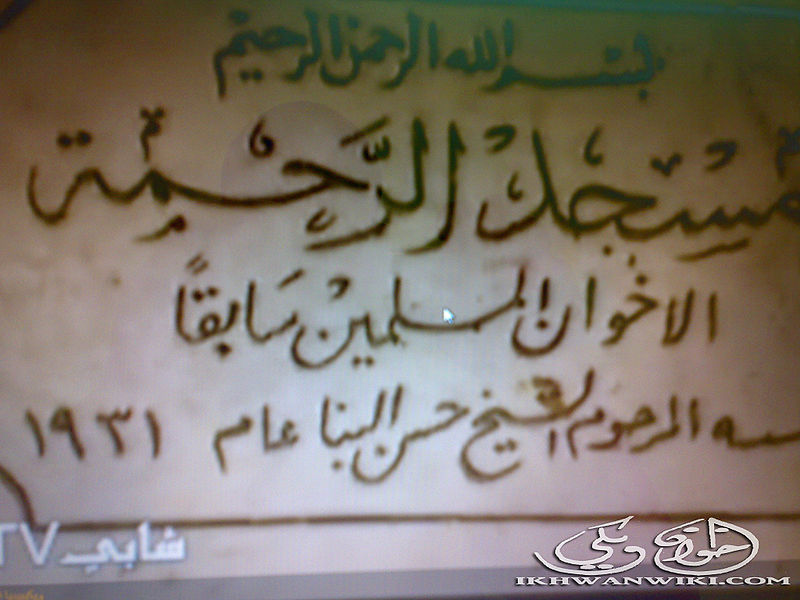 بسم الله الرحمن الرحيم
مسجد الرحمة
الاخوان المسلمين سابقاً
سسه المرحوم الشيخ حسن البنا عام ١٩٣١
شابي TV
إخوان ويكي
IKHWANWIKI.COM